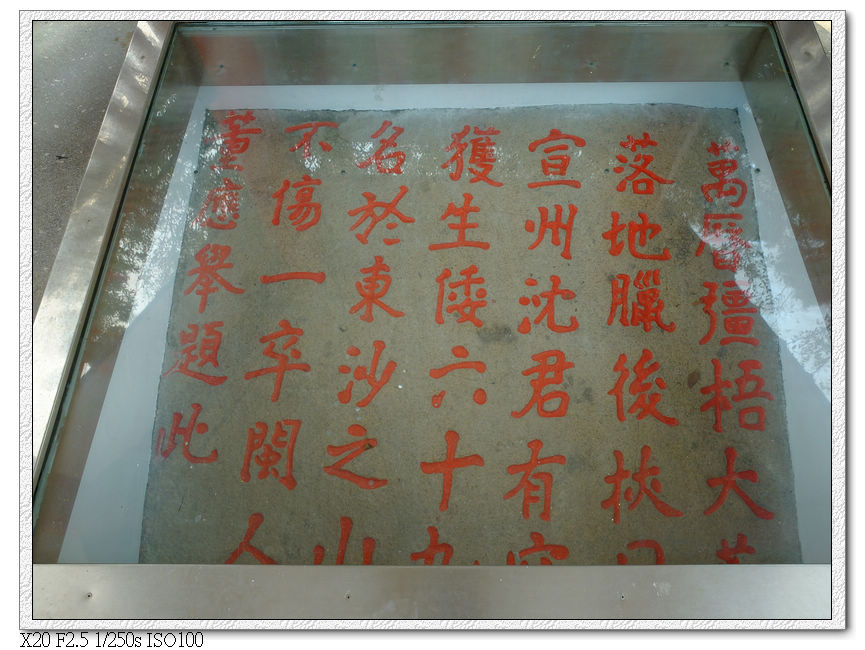 萬曆彊梧大
落地臘後挾
宣州沈君有
獲生倭六十九
名於東沙之山
不傷一卒閩人
董應舉題此
X20 F2.5 1/250s ISO100